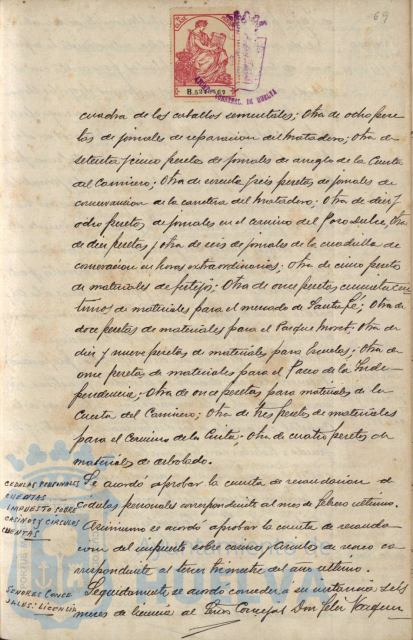 69
cuadra de los caballos sementales; Otra de ocho pese
tas de jornales de reparacion del Matadero; Otra de
setenta y cinco pesetas de jornales de arreglo de la Cuesta
del Carnicero; Otra de sesenta y seis pesetas de jornales de
conservacion de la carretera del Matadero; Otra de diez y
ocho pesetas de jornales en el camino del Pozo Dulce, Otra
de diez pesetas y otra de seis de jornales de la cuadrilla de
conservacion en horas extraordinarias; Otra de cinco pesetas
de materiales de festejos; Otra de once pesetas cincuenta cen
timos de materiales para el mercado de Santa Fé; Otra de
doce pesetas de materiales para el Parque Moret. Otra de
diez y nueve pesetas de materiales para Escuelas; Otra de
once pesetas de materiales para el Paseo de la Inde
pendencia; Otra de once pesetas para materiales de la
Cuesta del Carnicero; Otra de tres pesetas de materiales
para el Camino de la Cinta; Otra de cuatro pesetas de
materiales de arbolado.
CEDULAS PERSONALES
CUENTAS
Se acordó aprobar la cuenta de recaudacion de
cédulas personales correspondiente al mes de Febrero ultimo.
IMPUESTO SOBRE
CASINOS Y CIRCULOS
CUENTAS
Asimismo se acordó aprobar la cuenta de recauda
cion del impuesto sobre casinos y circulos de recreo co
rrespondiente al tercer trimestre del año ultimo.
SEÑORES CONCE
JALES: LICENCIA
Seguidamente se acordo conceder a su instancia seis
meses de licencia al Señor Concejal Don Felix Vazquez
Ayuntamiento de
HUELVA